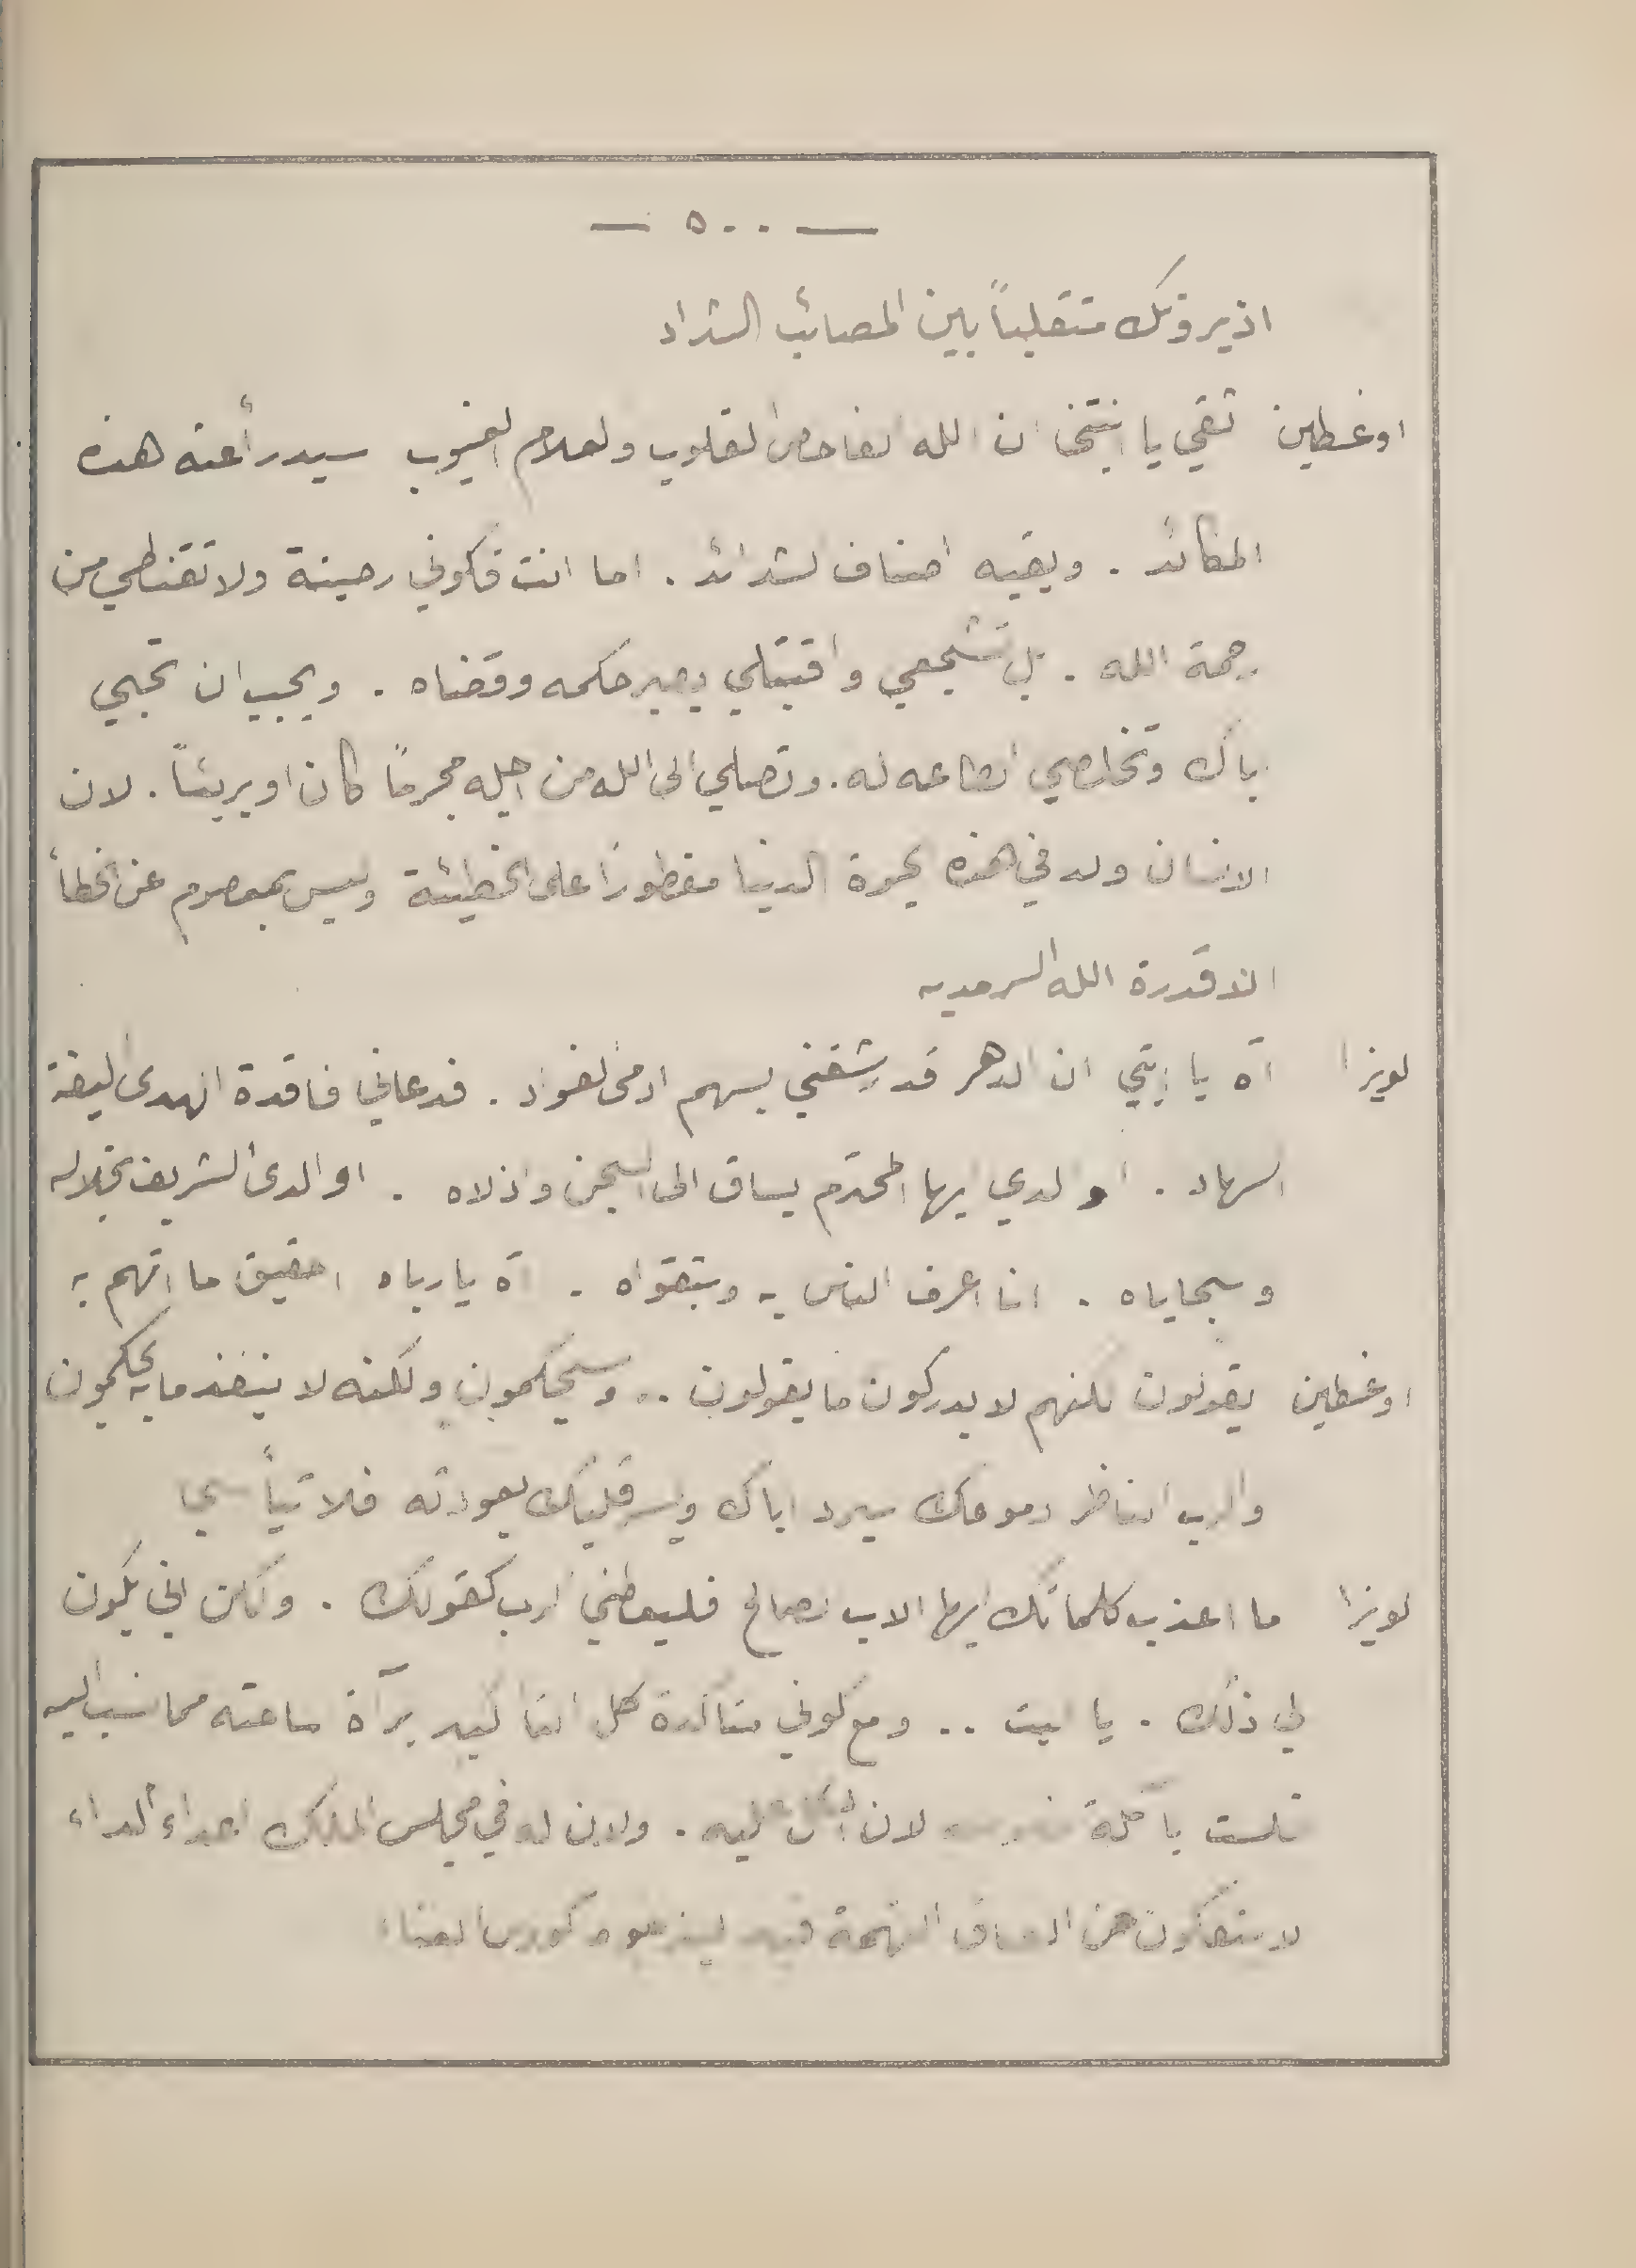 — ٥٠٠ —
اذ يرونك متقلباً بين المصائب الشداد
اوغسطين ثقي يا ابنتي ان الله الفاحص القلوب والعلام الغيوب سيدرأ عنه هذه
المكائد . ويقيه اصناف الشدائد . اما انت فكوني رصينة ولا تقنطي من
رحمة الله . بل تشجعي واقتبلي بصبر حكمه وقضاه . ويجب ان تحبي
اباك وتخلصي الطاعه له . وتصلي الى الله من اجله مجرماً كان او بريئاً . لان
الانسان ولد في هذه الحيوة الدنيا مفطوراً على الخطيئة وليس بمعصوم عن الخطأ
الا قدرة الله السرمديه
لويزا آه يا ابتي ان الدهر قد رشقني بسهم ادمى الفواد . فدعاني فاقدة الهدى اليفة
السهاد . او الدي ايها المحترم يساق الى السجن واذلاه . او الدى الشريف بخلاله
وسجاياه . انا اعرف الناس به وبتقواه . آه يا رباه احقيق ما اتهم به
اوغسطين يقولون لكنهم لا يدركون ما يقولون .. وسيحكمون ولكنه لا ينفذ ما به يحكمون
والرب الناظر دموعك سيرد اباك ويسر قلبك بعودته فلا تيأسي
لويزا ما اعذب كلماتك ايها الاب الصالح فليعطني الرب كقولك . ولكن انى يكون
لي ذلك . يا ليت .. ومع كوني متأكدة كل التأكيد برآة ساحته مما نسب اليه
فلست بآملة لان عليه . ولان له في مجلس الملك اعداء الداء
لا ينفكون عن الصاق التهمة فيه كوءوس العناء